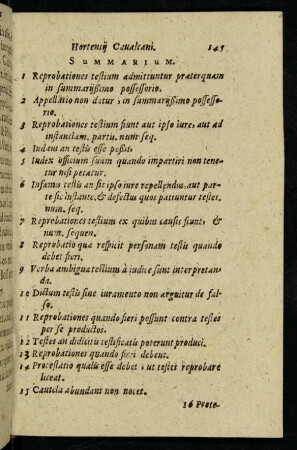 Hortensij Caualcani. 145
SUMMARIUM.
1 Reprobationes testium admittuntur præterquam
in summarijßimo possessorio.
2 Appellatio non datur, in summarijßimo possesso-
rio.
3 Reprobationes testium fiunt aut ipso iure, aut ad
instantiam. partis. num seq.
4 Iudæus an testis esse poßit.
5 Iudex officium suum quando impartiri non tene-
tur nisi petatur.
6 Infamis testis an sit ipso iure repellendus, aut par-
te sic instante, & defectus quos patiuntur testes.
num. seq.
7 Reprobationes testium ex quibus causis fiunt, &
num. sequen.
8 Reprobatio qua respicit personam testis quando
debet fieri.
9 Verba ambigua testium à iudice sunt interpretan-
da.
10 Dictum testis sine iuramento non arguitur de fal-
so.
11 Reprobationes quando fieri possunt contra testes
per se productos.
12 Testes an didicitis testificatis poterunt produci.
13 Reprobationes quando fieri debent.
14 Protestatio qualis esse debet, ut testes reprobare
liceat.
15 Cautela abundant non nocet.
16 Prote-